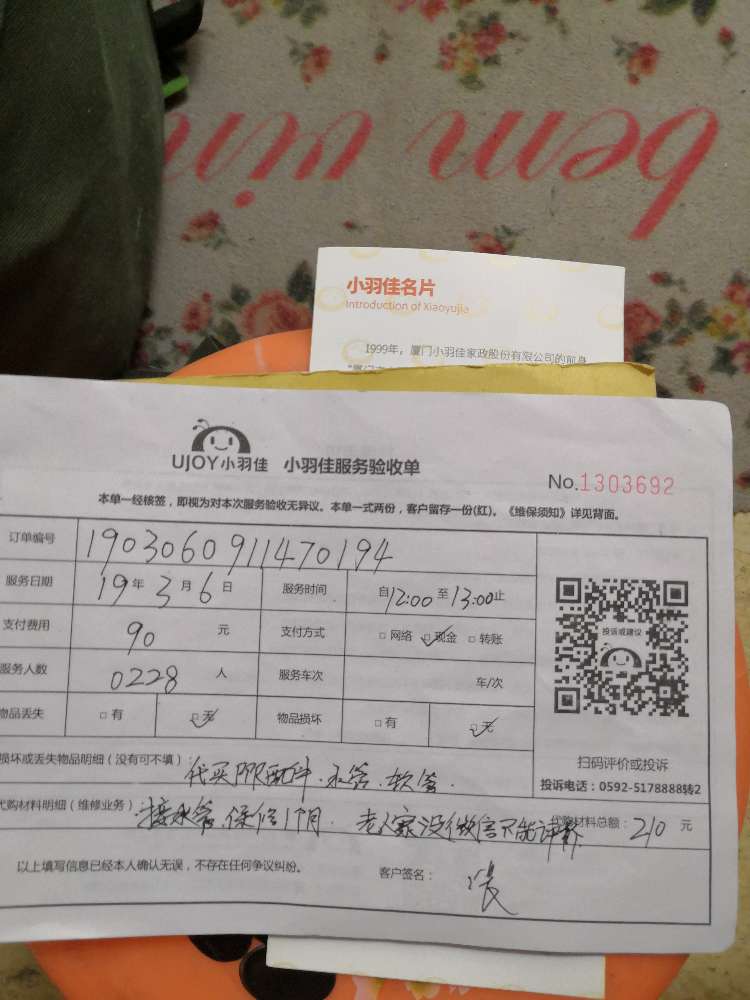 bem vin
小羽佳名片
Introduction of Xiaoyujia
1999年，厦门小羽佳家政股份有限公司的前身
UJOY小羽佳 小羽佳服务验收单
No.1303692
本单一经核签，即视为对本次服务验收无异议。本单一式两份，客户留存一份(红)。《维保须知》详见背面。
订单编号 1903060911470194
服务日期 19年3月6日 服务时间 自12:00至13:00止
支付费用 90 元 支付方式 □网络 □现金 □转账
服务人数 0228 人 服务车次 车/次
物品丢失 □有 □无 物品损坏 □有 □无
投诉或建议
扫码评价或投诉
投诉电话：0592-5178888转2
损坏或丢失物品明细（没有可不填）：代买PPR配件.水管.软管.
代购材料明细（维修业务）：接水管.保修1个月 老人家没微信不能评价 代购材料总额：210 元
以上填写信息已经本人确认无误，不存在任何争议纠纷。 客户签名： 张